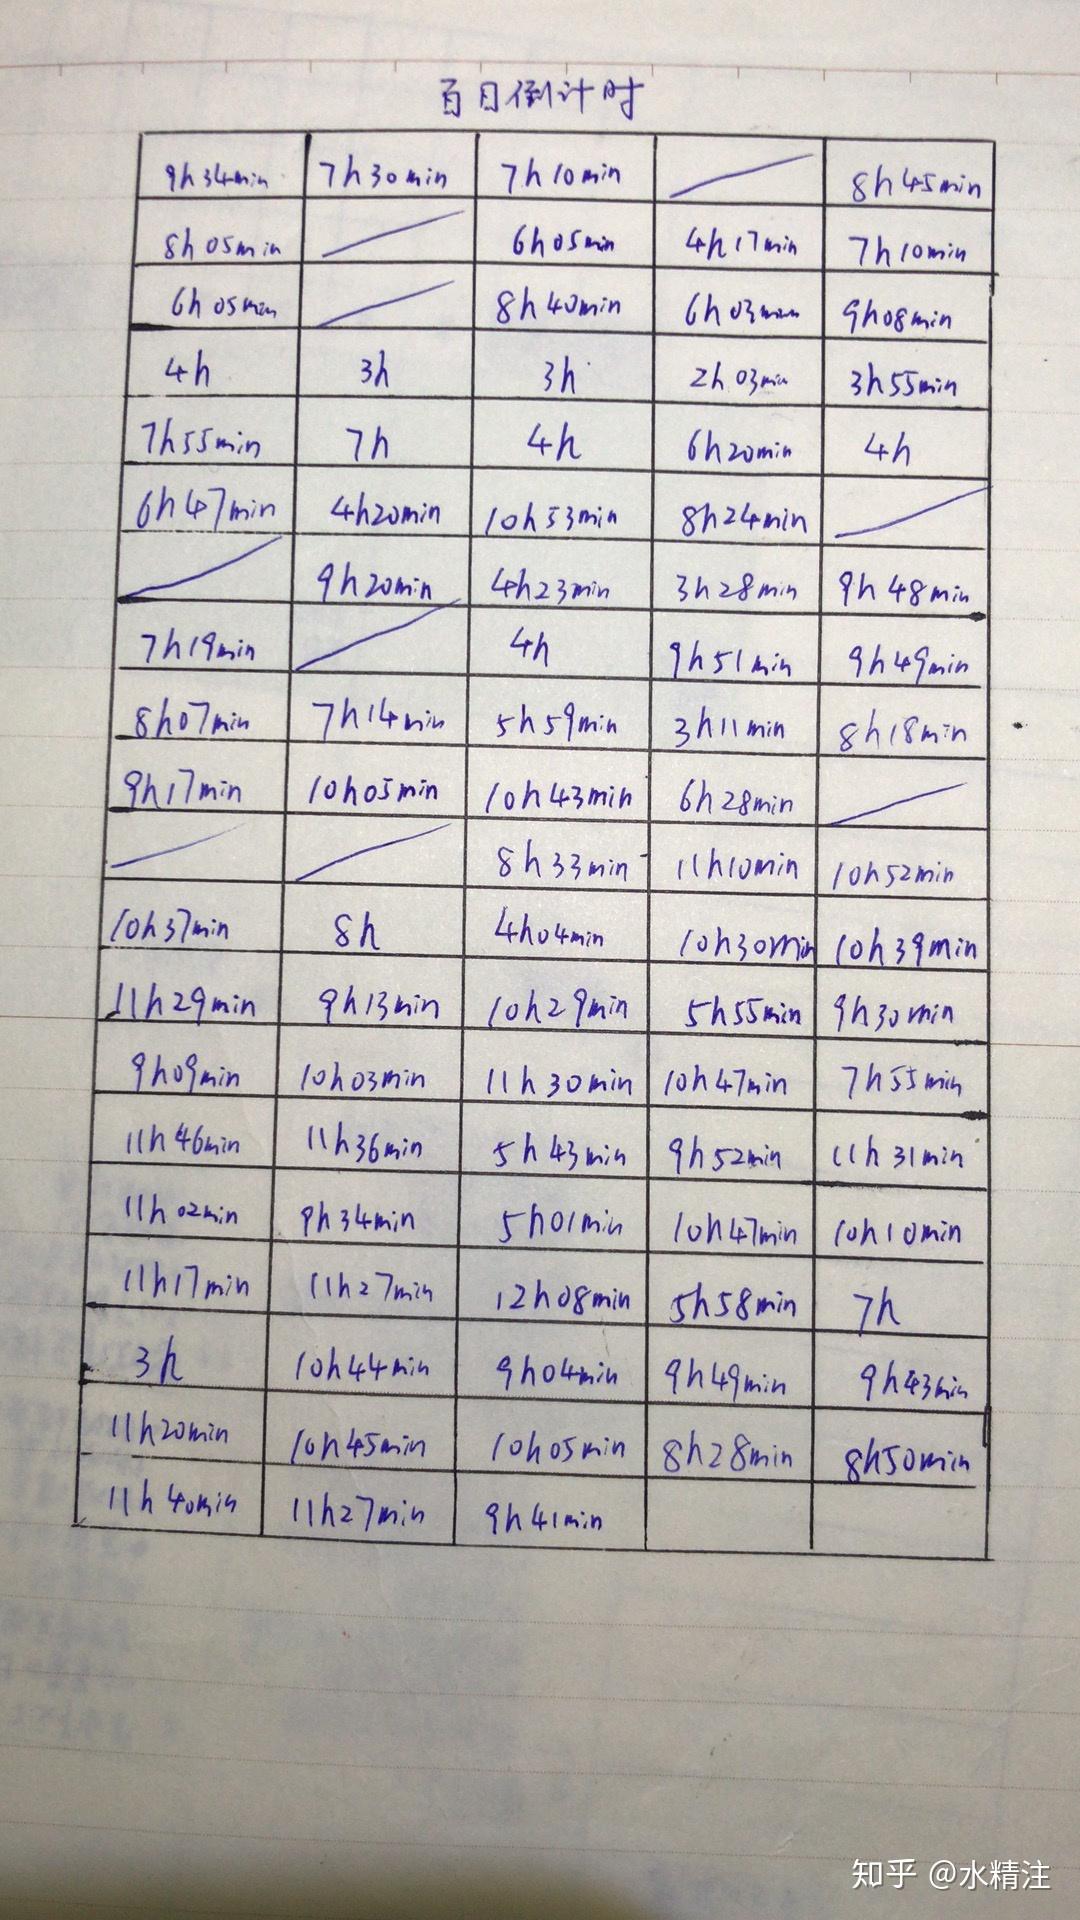 百日倒计时
9h34min 7h30min 7h10min 8h45min
8h05min 6h05min 4h17min 7h10min
6h05min 8h40min 6h03min 9h08min
4h 3h 3h 2h03min 3h55min
7h55min 7h 4h 6h20min 4h
6h47min 4h20min 10h53min 8h24min
9h20min 4h23min 3h28min 9h48min
7h19min 4h 9h51min 9h49min
8h07min 7h14min 5h59min 3h11min 8h18min
9h17min 10h05min 10h43min 6h28min
8h33min 11h10min 10h52min
10h37min 8h 4h04min 10h30min 10h39min
11h29min 9h13min 10h29min 5h55min 9h30min
9h09min 10h03min 11h30min 10h47min 7h55min
11h46min 11h36min 5h43min 9h52min 11h31min
11h02min 9h34min 5h01min 10h47min 10h10min
11h17min 11h27min 12h08min 5h58min 7h
3h 10h44min 9h04min 9h49min 9h43min
11h20min 10h45min 10h05min 8h28min 8h50min
11h40min 11h27min 9h41min
知乎 @水精注